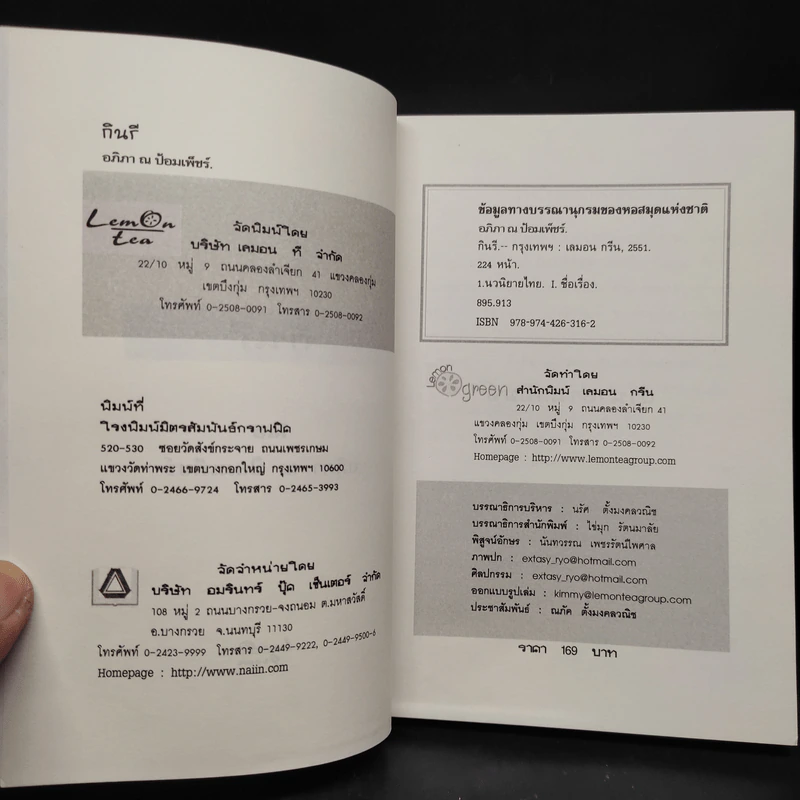 กินรี
อภิภา ณ ป้อมเพ็ชร์.
Lemon
tea
จัดพิมพ์โดย
บริษัท เลมอน ที จำกัด
22/10 หมู่ 9 ถนนคลองลำเจียก 41 แขวงคลองกุ่ม
เขตบึงกุ่ม กรุงเทพฯ 10230
โทรศัพท์ 0-2508-0091 โทรสาร 0-2508-0092
พิมพ์ที่
โรงพิมพ์มิตรสัมพันธ์กราฟฟิค
520-530 ซอยวัดสังข์กระจาย ถนนเพชรเกษม
แขวงวัดท่าพระ เขตบางกอกใหญ่ กรุงเทพฯ 10600
โทรศัพท์ 0-2466-9724 โทรสาร 0-2465-3993
จัดจำหน่ายโดย
บริษัท อมรินทร์ บุ๊ค เซ็นเตอร์ จำกัด
108 หมู่ 2 ถนนบางกรวย-จงถนอม ต.มหาสวัสดิ์
อ.บางกรวย จ.นนทบุรี 11130
โทรศัพท์ 0-2423-9999 โทรสาร 0-2449-9222, 0-2449-9500-6
Homepage : http://www.naiin.com
ข้อมูลทางบรรณานุกรมของหอสมุดแห่งชาติ
อภิภา ณ ป้อมเพ็ชร์.
กินรี.-- กรุงเทพฯ : เลมอน กรีน, 2551.
224 หน้า.
1.นวนิยายไทย. I. ชื่อเรื่อง.
895.913
ISBN 978-974-426-316-2
Lemon
green
จัดทำโดย
สำนักพิมพ์ เลมอน กรีน
22/10 หมู่ 9 ถนนคลองลำเจียก 41
แขวงคลองกุ่ม เขตบึงกุ่ม กรุงเทพฯ 10230
โทรศัพท์ 0-2508-0091 โทรสาร 0-2508-0092
Homepage : http://www.lemonteagroup.com
บรรณาธิการบริหาร : นรัศ ตั้งมงคลวณิช
บรรณาธิการสำนักพิมพ์ : ไข่มุก รัตนมาลัย
พิสูจน์อักษร : นันทวรรณ เพชรรัตน์ไพศาล
ภาพปก : extasy_ryo@hotmail.com
ศิลปกรรม : extasy_ryo@hotmail.com
ออกแบบรูปเล่ม : kimmy@lemonteagroup.com
ประชาสัมพันธ์ : ณภัค ตั้งมงคลวณิช
ราคา 169 บาท